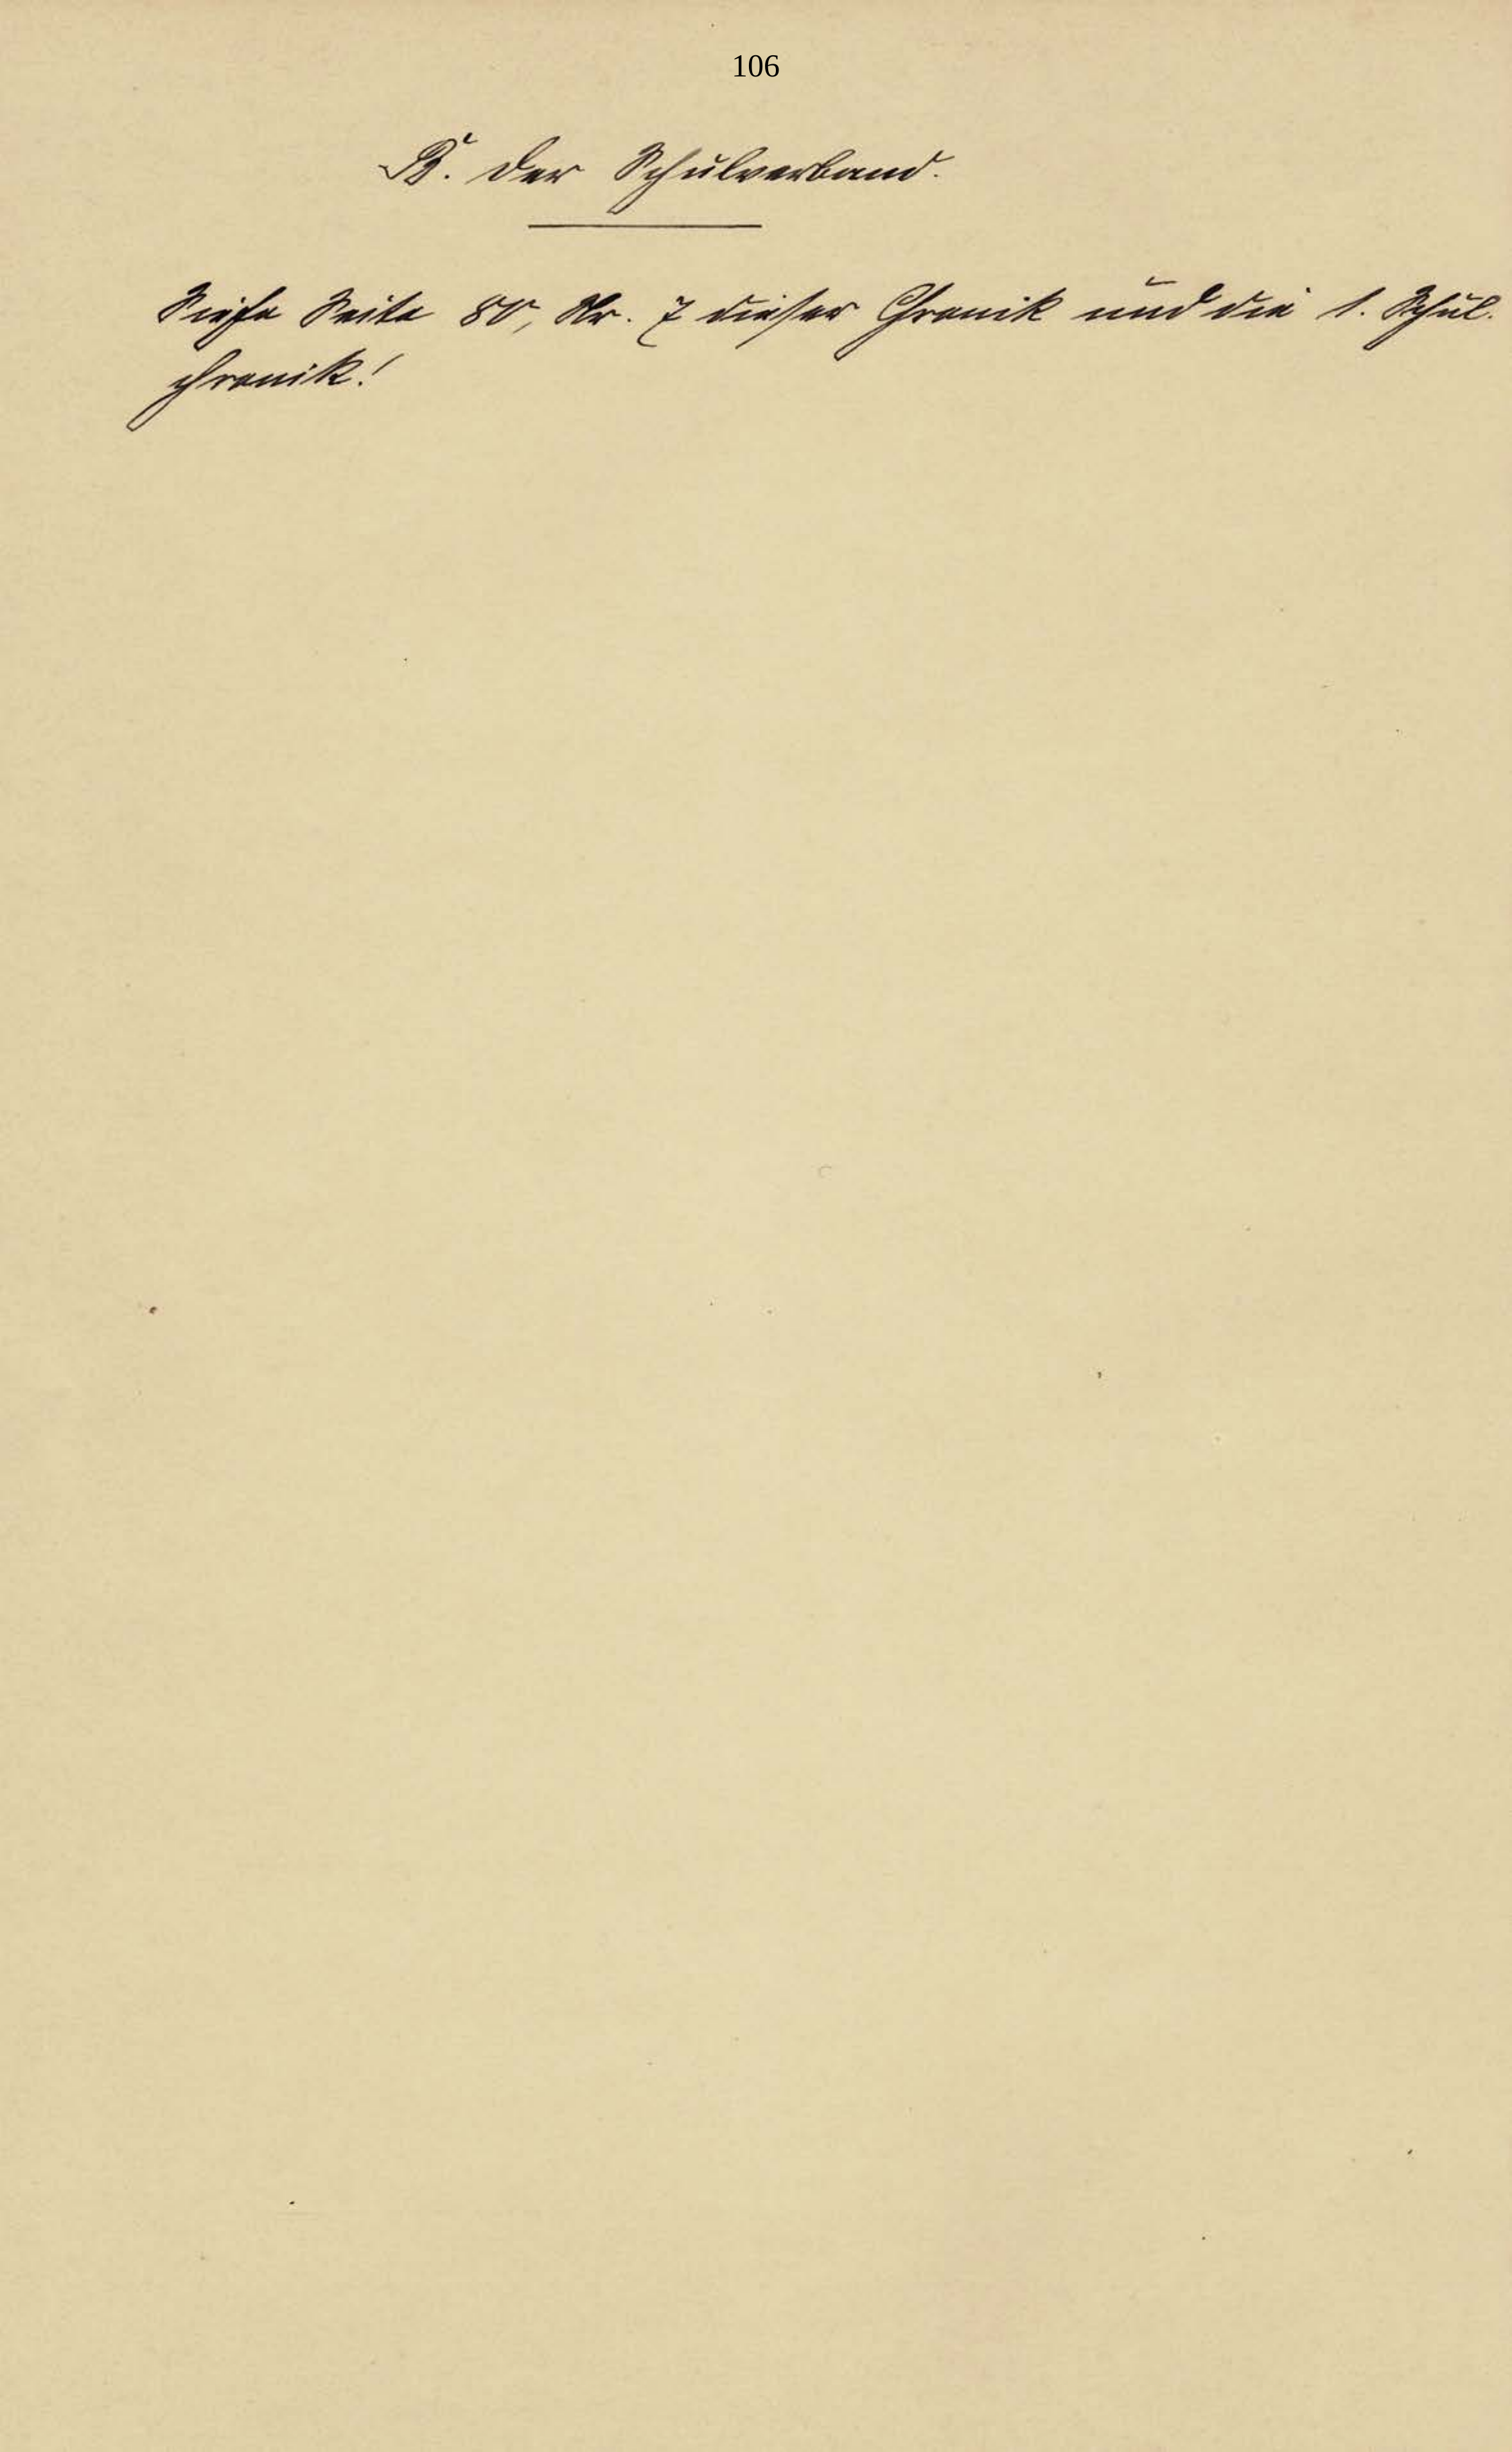 106
B. Der Schulverband.
Siehe Seite 80, Nr. 7 dieser Chronik und die 1. Schul-
chronik!